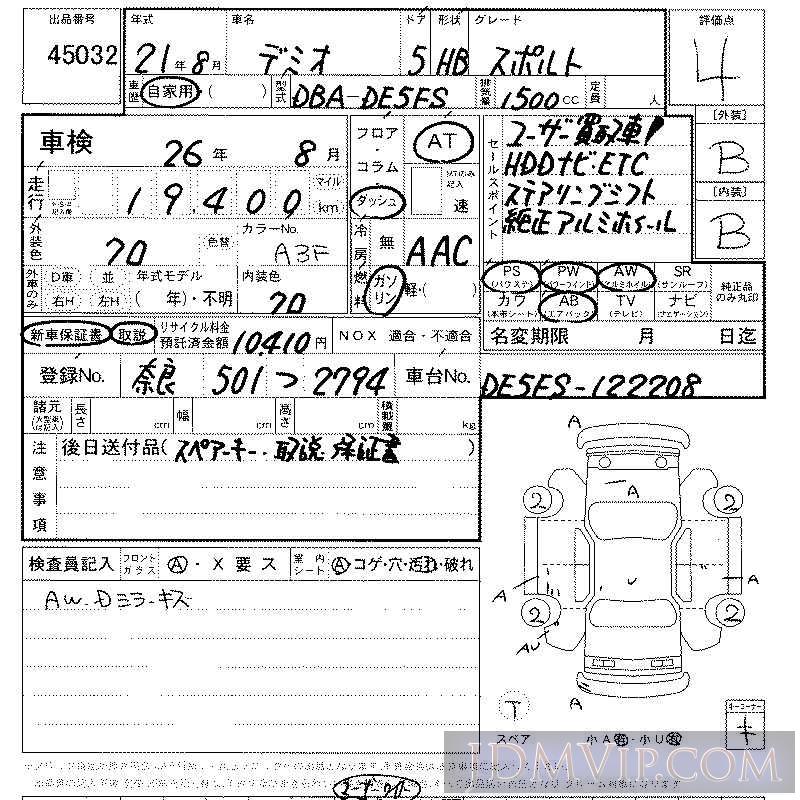 出品番号 年式 車名 ドア 形状 グレード 評価点
45032 21年8月 デミオ 5 HB スポルト 4
車歴 自家用・( ) 型式 DBA-DE5FS 排気量 1500cc 定員 人
車検 26年 8月
フロア・コラム ダッシュ
AT
MTのみ記入 速
セールスポイント
ユーザー買取車!
HDDナビ・ETC
ステアリングシフト
純正アルミホイール
[外装] B
[内装] B
走行 19,400 マイル km
外装色 20 色替 カラーNo. A3F
冷房 無 AAC
外車のみ D車 並 年式モデル
右H 左H ( 年)・不明
内装色 20
燃料 ガソリン 軽・( )
PS (パワステ) PW (パワーウインド) AW (アルミホイル) SR (サンルーフ) 純正品のみ丸印
カワ (本革シート) AB (エアバック) TV (テレビ) ナビ (ナビゲーション)
新車保証書 取説 リサイクル料金預託済金額 10,410円 NOX 適合・不適合
名変期限 月 日迄
登録No. 奈良 501 つ 2794 車台No. DE5FS-122208
諸元 長さ cm 幅 cm 高さ cm 積載量 kg
注意事項
後日送付品( スペアーキー・取説・保証書 )
検査員記入 フロントガラス A・X 要 ス 業内シート A コゲ・穴・汚れ・破れ
AW・Dミラーキズ
A
A
2 2
A A
2 2
AU
A
T
スペア 小A 小U
キーコーナー
JDMVIP.COM